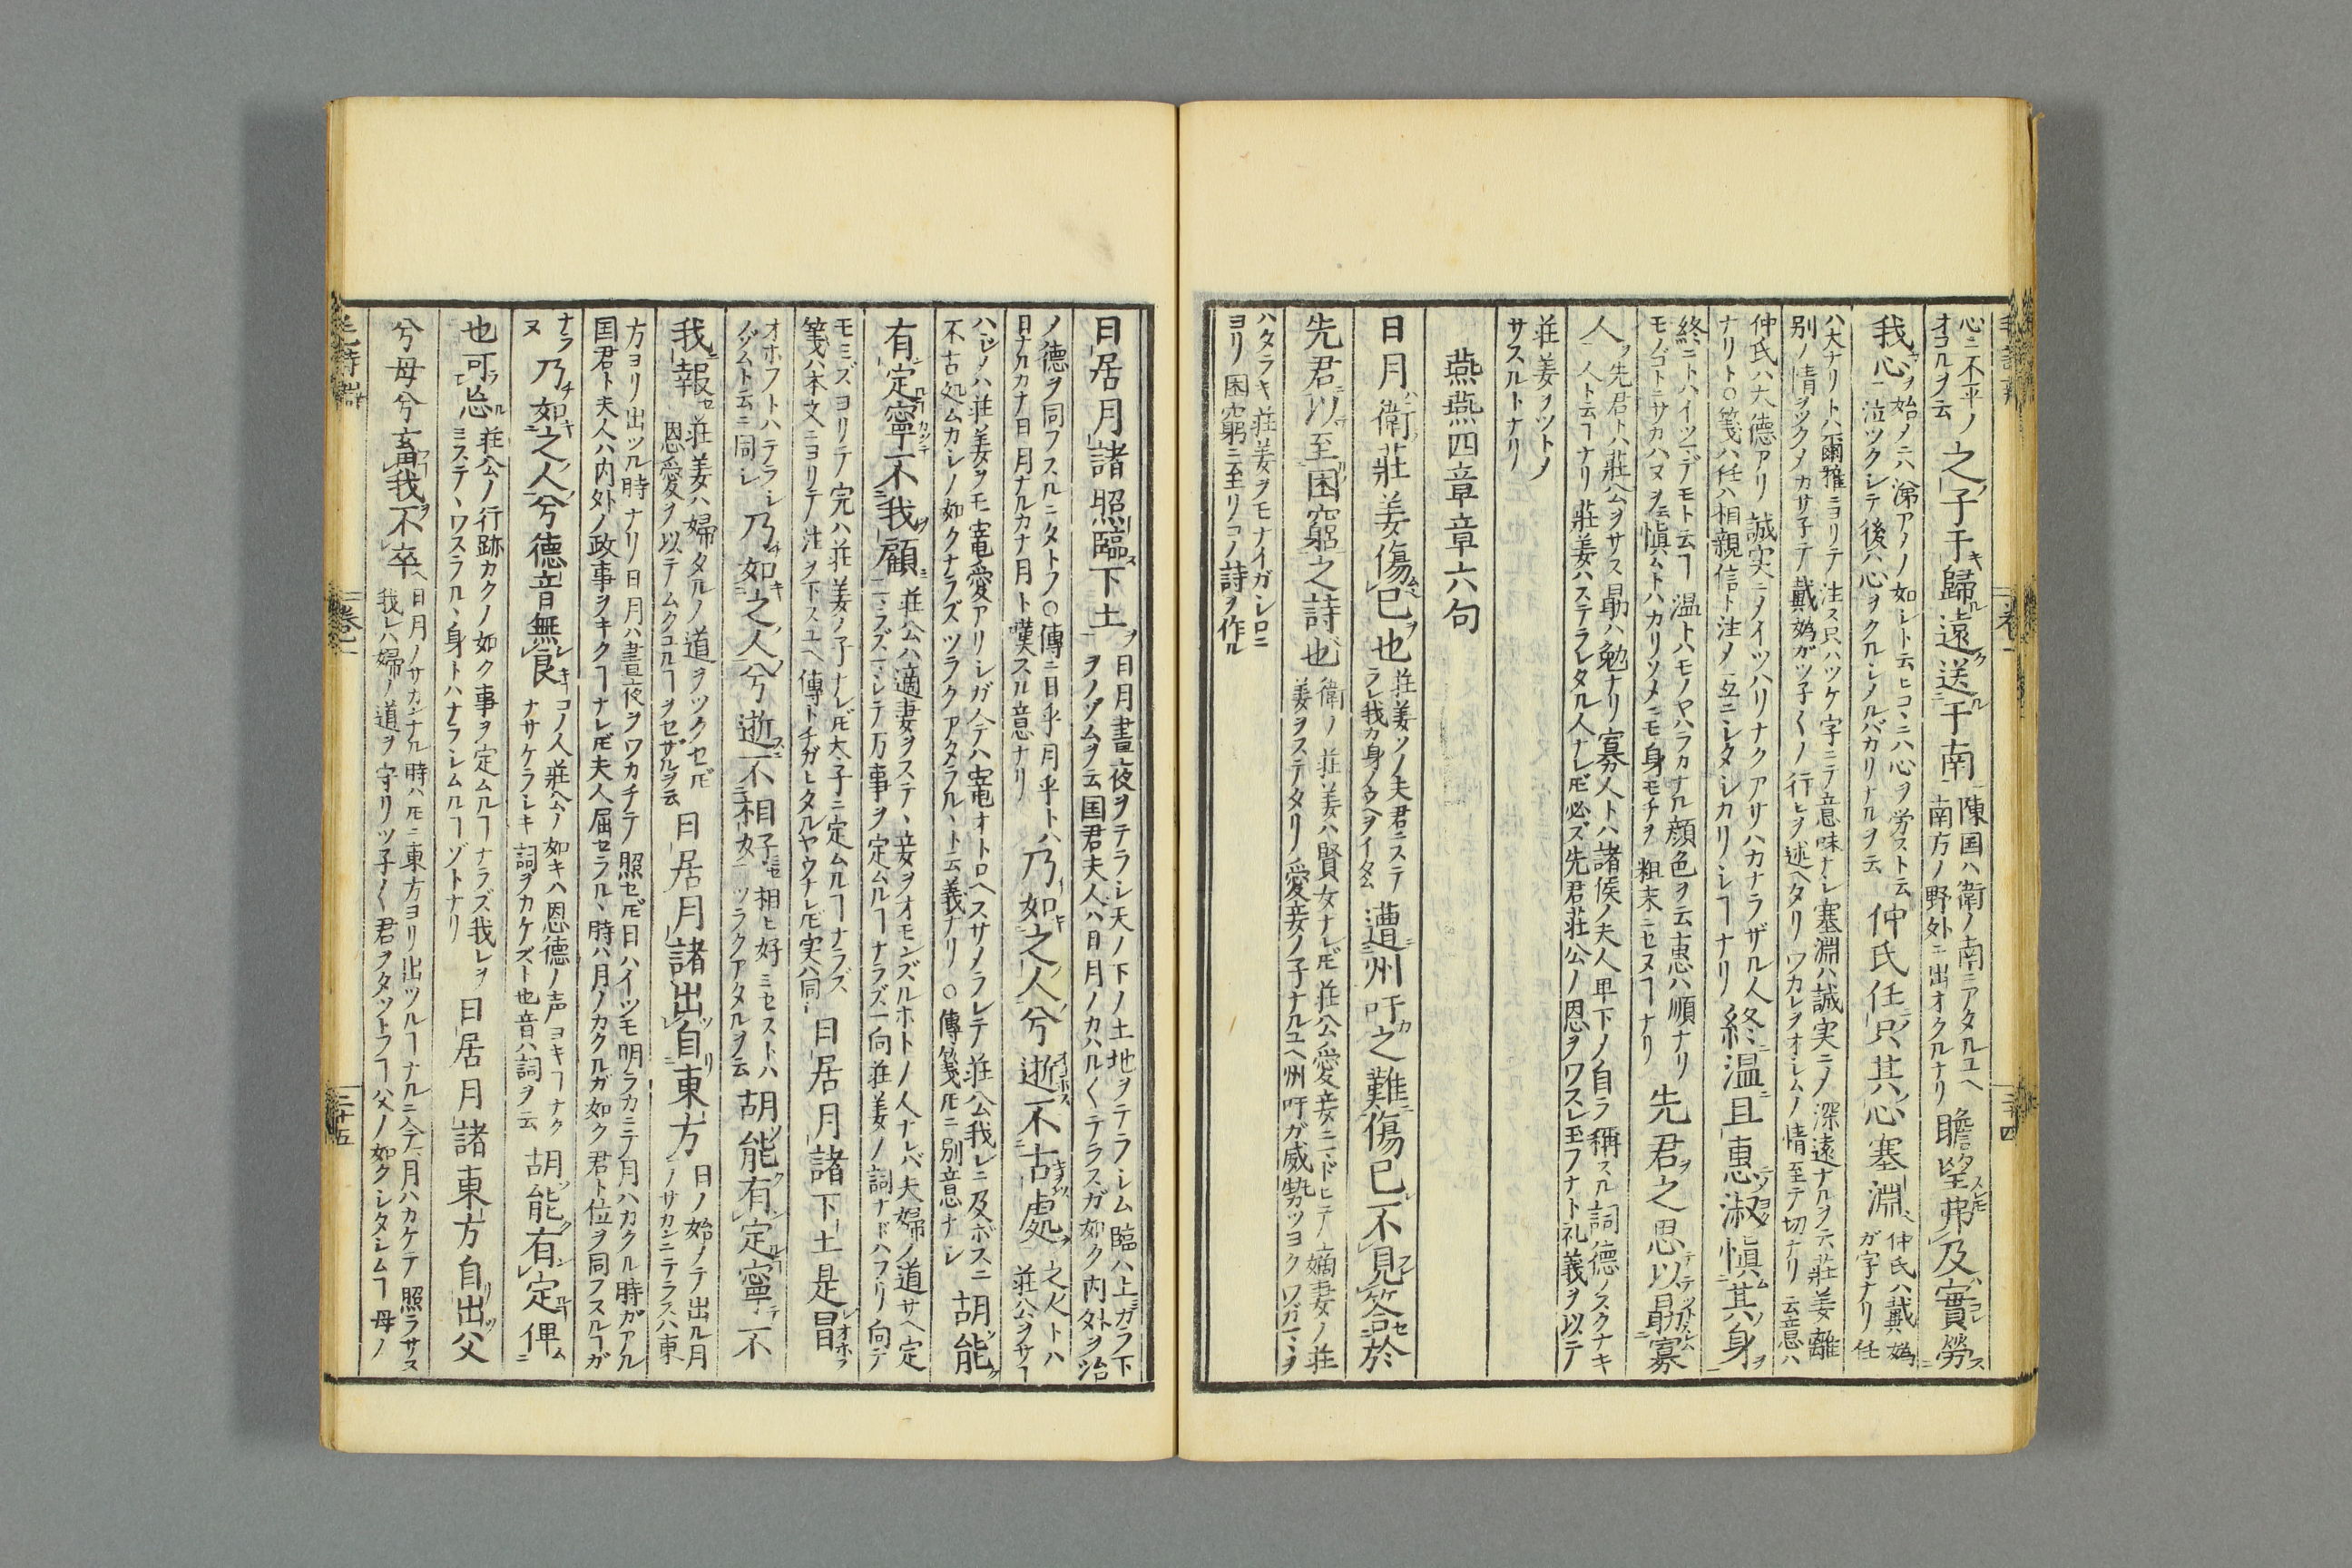 心ニ不平ノ
オコルヲ云
之子于歸遠送于南
陳国ハ衛ノ南ニアタルユヘ
南方ノ野外ニ出オクルナリ
瞻望弗及實勞
我心
始ノニハ涕アメノ如シト云ヒコヽニハ心ヲ労スト云
泣ツクシテ後ハ心ヲクルシメルバカリナルヲ云
仲氏任只其心塞淵
仲氏ハ戴嬀
ガ字ナリ任
ハ大ナリトハ爾雅ニヨリテ注ス只ハツケ字ニテ意味ナシ塞淵ハ誠実ニメ深遠ナルヲ云莊姜離
別ノ情ヲツクメカサ子テ戴嬀ガツ子〳〵ノ行ヒヲ述ヘタリワカレヲオシムノ情至テ切ナリ云意ハ
仲氏ハ大德アリ誠実ニメイツハリナクアサハカナラザル人
ナリト○箋ハ任ハ相親信ト注メ互ニシタシカリシヿナリ
終温且惠淑愼其身
終ニトハイツマデモト云ヿ温トハモノヤハラカナル顔色ヲ云惠ハ順ナリ
モノゴトニサカハヌヲ云愼ムトハカリソメニモ身モチヲ粗末ニセヌヿナリ
先君之思以勗寡
人
先君トハ莊公ヲサス勗ハ勉ナリ寡人トハ諸侯ノ夫人卑下ノ自ラ稱スル詞德ノスクナキ
人ト云ヿナリ莊姜ハステラレタル人ナレ𪜈必ズ先君荘公ノ恩ヲワスレ玉フナト礼義ヲ以テ
荘姜ヲツトメ
サスルトナリ
燕燕四章章六句
日月衛莊姜傷已也
荘姜ソノ夫君ニステ
ラレ我カ身ノウヘヲイタム
遭州吁之難傷已不見答於
先君以至困窮之詩也
衛ノ荘姜ハ賢女ナレ𪜈荘公愛妾ニマドヒテ嫡妻ノ荘
姜ヲステタリ愛妾ノ子ナルユヘ州吁ガ威勢ツヨクワガマヽヲ
ハタラキ荘姜ヲモナイガシロニ
ヨリ困窮ニ至リコノ詩ヲ作ル
日居月諸照臨下土
日月晝夜ヲテラシ天ノ下ノ土地ヲテラシム臨ハ上ガラ下
ヲノゾムヲ云国君夫人ハ日月ノカハル〳〵テラスガ如ク内外ヲ治
ノ德ヲ同フスルニタトフ○傳ニ日乎月乎トハ
日ナルカナ日月ナルカナ月ト嘆スル意ナリ
乃如之人兮逝不古處
之人トハ
荘公ヲサス
ハジメハ荘姜ヲモ寵愛アリシガ今ハ寵オトロヘスサメラレテ荘公我レニ及ボスニ
不古処ムカシノ如クナラズツラクアタラルヽト云義ナリ○傳箋𪜈ニ別意ナシ
胡能
有定寧不我顧
荘公ハ適妻ヲステヽ妾ヲオモンズルホトノ人ナレバ夫婦ノ道サヘ定
マラズマシテ万事ヲ定ムルヿナラズ一向荘姜ノ詞ナドハフリ向テ
モミズヨリテ完ハ荘姜ノ子ナレ𪜈太子ニ定ムルヿナラズ
箋ハ本文ニヨリテ注ヲ下スユヘ傳トチガヒタルヤウナレ𪜈実ハ同シ
日居月諸下土是冒
オホフトハテラシ
ノゾムト云ニ同シ
乃如之人兮逝不相好
相ヒ好ミセストハ
ツラクアタルヲ云
胡能有定寧不
我報
荘姜ハ婦タルノ道ヲツクセ𪜈
恩愛ヲ以テムクユルヿヲセザルヲ云
日居月諸出自東方
日ノ始メテ出ル月
ノサカンニテラスハ東
方ヨリ出ツル時ナリ日月ハ晝夜ヲワカチテ照セ𪜈日ハイツモ明ラカニテ月ハカクル時ガアル
国君ト夫人ハ内外ノ政事ヲキクヿナレ𪜈夫人屈セラルヽ時ハ月ノカクルガ如ク君ト位ヲ同フスルヿガ
ナラ
ヌ
乃如之人兮德音無良
コノ人荘公ノ如キハ恩德ノ声ヨキヿナク
ナサケラシキ詞ヲカケズト也音ハ詞ヲ云
胡能有定俾
也可忘
荘公ノ行跡カクノ如ク事ヲ定ムルヿナラズ我レヲ
ミステヽワスラルヽ身トハナラシムルヿゾトナリ
日居月諸東方自出父
兮母兮畜我不卒
日月ノサカンナル時ハ𪜈ニ東方ヨリ出ツルヿナルニ今月ハカケテ照ラサス
我レハ婦ノ道ヲ守リツ子〳〵君ヲタツトフヿ父ノ如クシタシムヿ母ノ
卷一
三十五